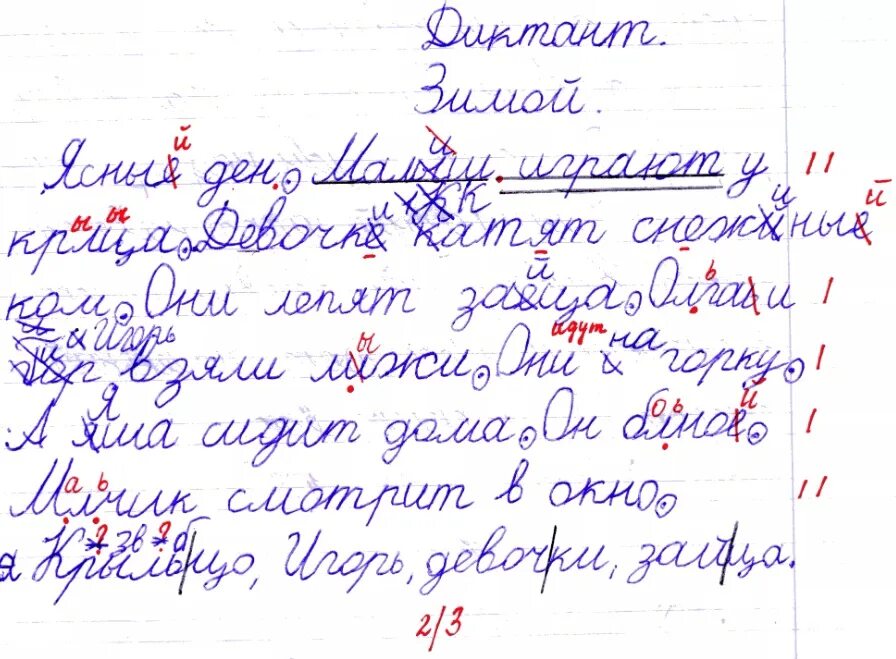 Диктант.
Зимой.
Ясный ден. Малыши играют у
крлца. Девочки катят снежный
ком. Они лепят зайца. Олга и
Игорь взяли лижи. Они идут на горку.
А Яма сидит дома. Он блной.
Млчик смотрит в окно.
я Крыльцо, Игорь, девочки, зайца.
2/3